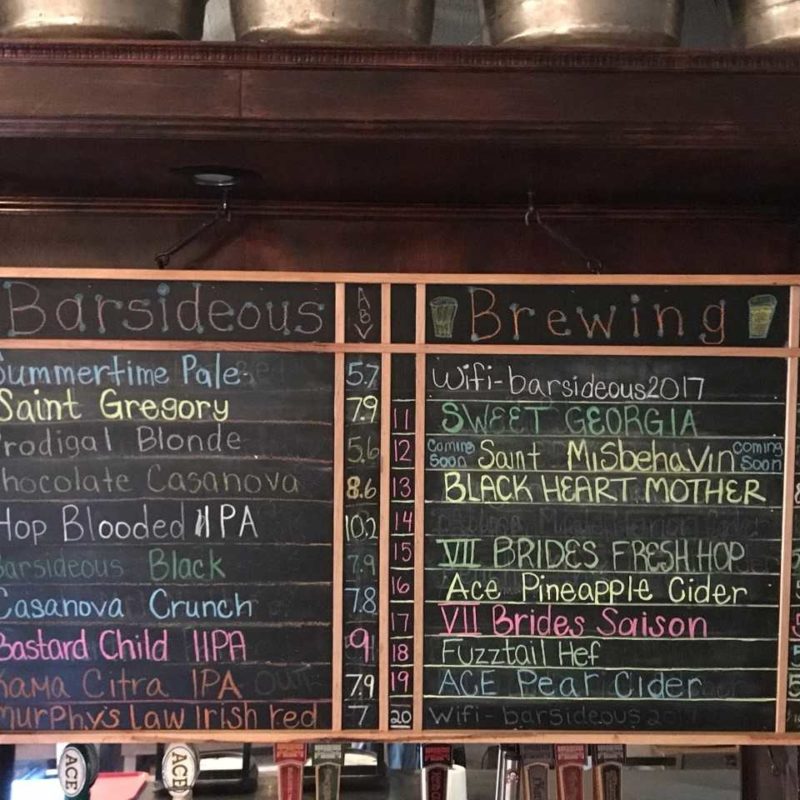 Barsideous ABV Brewing
Summertime Pale 5.7
Saint Gregory 7.9
Prodigal Blonde 5.6
Chocolate Casanova 8.6
Hop Blooded IIPA 10.2
Barsideous Black 7.9
Casanova Crunch 7.8
Bastard Child IIPA 9
Kama Citra IPA 7.9
Murphy's Law Irish red 7
Wifi-barsideous2017
11 SWEET GEORGIA
12 Coming Soon Saint MisbehaVin Coming Soon
13 BLACK HEART MOTHER
14
15 VII BRIDES FRESH HOP
16 Ace Pineapple Cider
17 VII Brides Saison
18 Fuzztail Hef
19 ACE Pear Cider
20 Wifi-barsideous 20
ACE
ACE